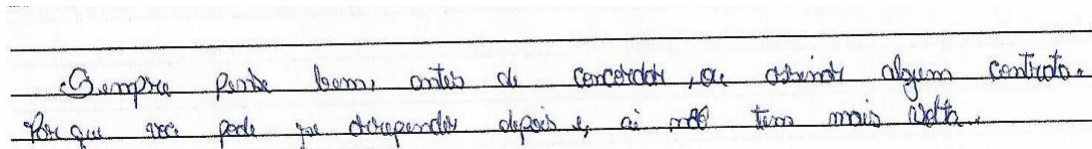 Sempre pense bem, antes de concordar, ou assinar algum contrato.
Por que você pode se arrepender depois e, ai não tem mais volta.